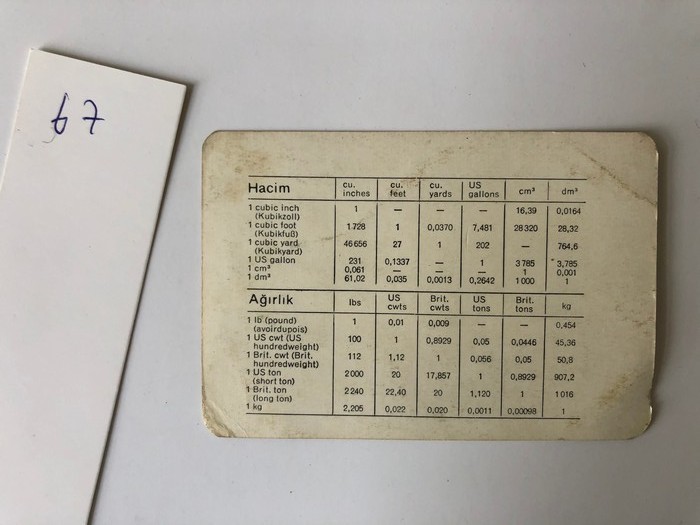 67
Hacim cu. inches cu. feet cu. yards US gallons cm³ dm³
1 cubic inch (Kubikzoll) 1 — — — 16,39 0,0164
1 cubic foot (Kubikfuß) 1 728 1 0,0370 7,481 28 320 28,32
1 cubic yard (Kubikyard) 46 656 27 1 202 — 764,6
1 US gallon 231 0,1337 — 1 3 785 3,785
1 cm³ 0,061 — — — 1 0,001
1 dm³ 61,02 0,035 0,0013 0,2642 1 000 1
Ağırlık lbs US cwts Brit. cwts US tons Brit. tons kg
1 lb (pound) (avoirdupois) 1 0,01 0,009 — — 0,454
1 US cwt (US hundredweight) 100 1 0,8929 0,05 0,0446 45,36
1 Brit. cwt (Brit. hundredweight) 112 1,12 1 0,056 0,05 50,8
1 US ton (short ton) 2 000 20 17,857 1 0,8929 907,2
1 Brit. ton (long ton) 2 240 22,40 20 1,120 1 1 016
1 kg 2,205 0,022 0,020 0,0011 0,00098 1